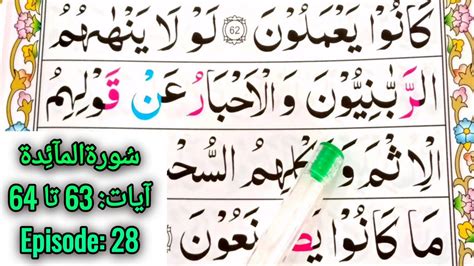 كَانُوْا يَعْمَلُوْنَ ﴿62﴾ لَوْلَا يَنْهٰىهُمُ
الرَّبّٰنِيُّوْنَ وَالْاَحْبَارُ عَنْ قَوْلِهِمُ
الْاِثْمَ السُّحْ
مَا كَانُوْا يَصْنَعُوْنَ
سُورة المآئِدة
آیات: 63 تا 64
Episode: 28